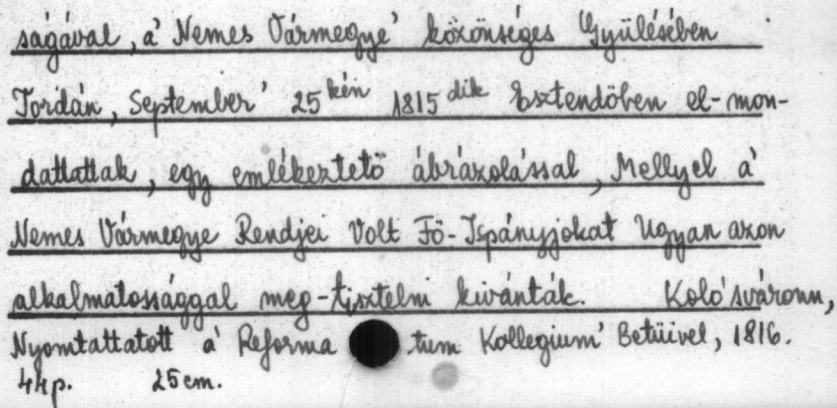 ságával, a' Nemes Vármegye' közönséges Gyülésében
Tordán, September' 25kén 1815dik Esztendőben el-mon-
dattattak, egy emlékeztető ábrázolással, Mellyel a'
Nemes Vármegye Rendjei Volt Fő-Ispányjokat Ugyan azon
alkalmatossággal meg-tisztelni kivánták. Kolo'sváronn,
Nyomtattatott a' Reforma tum Kollegium' Betüivel, 1816.
44p. 25cm.